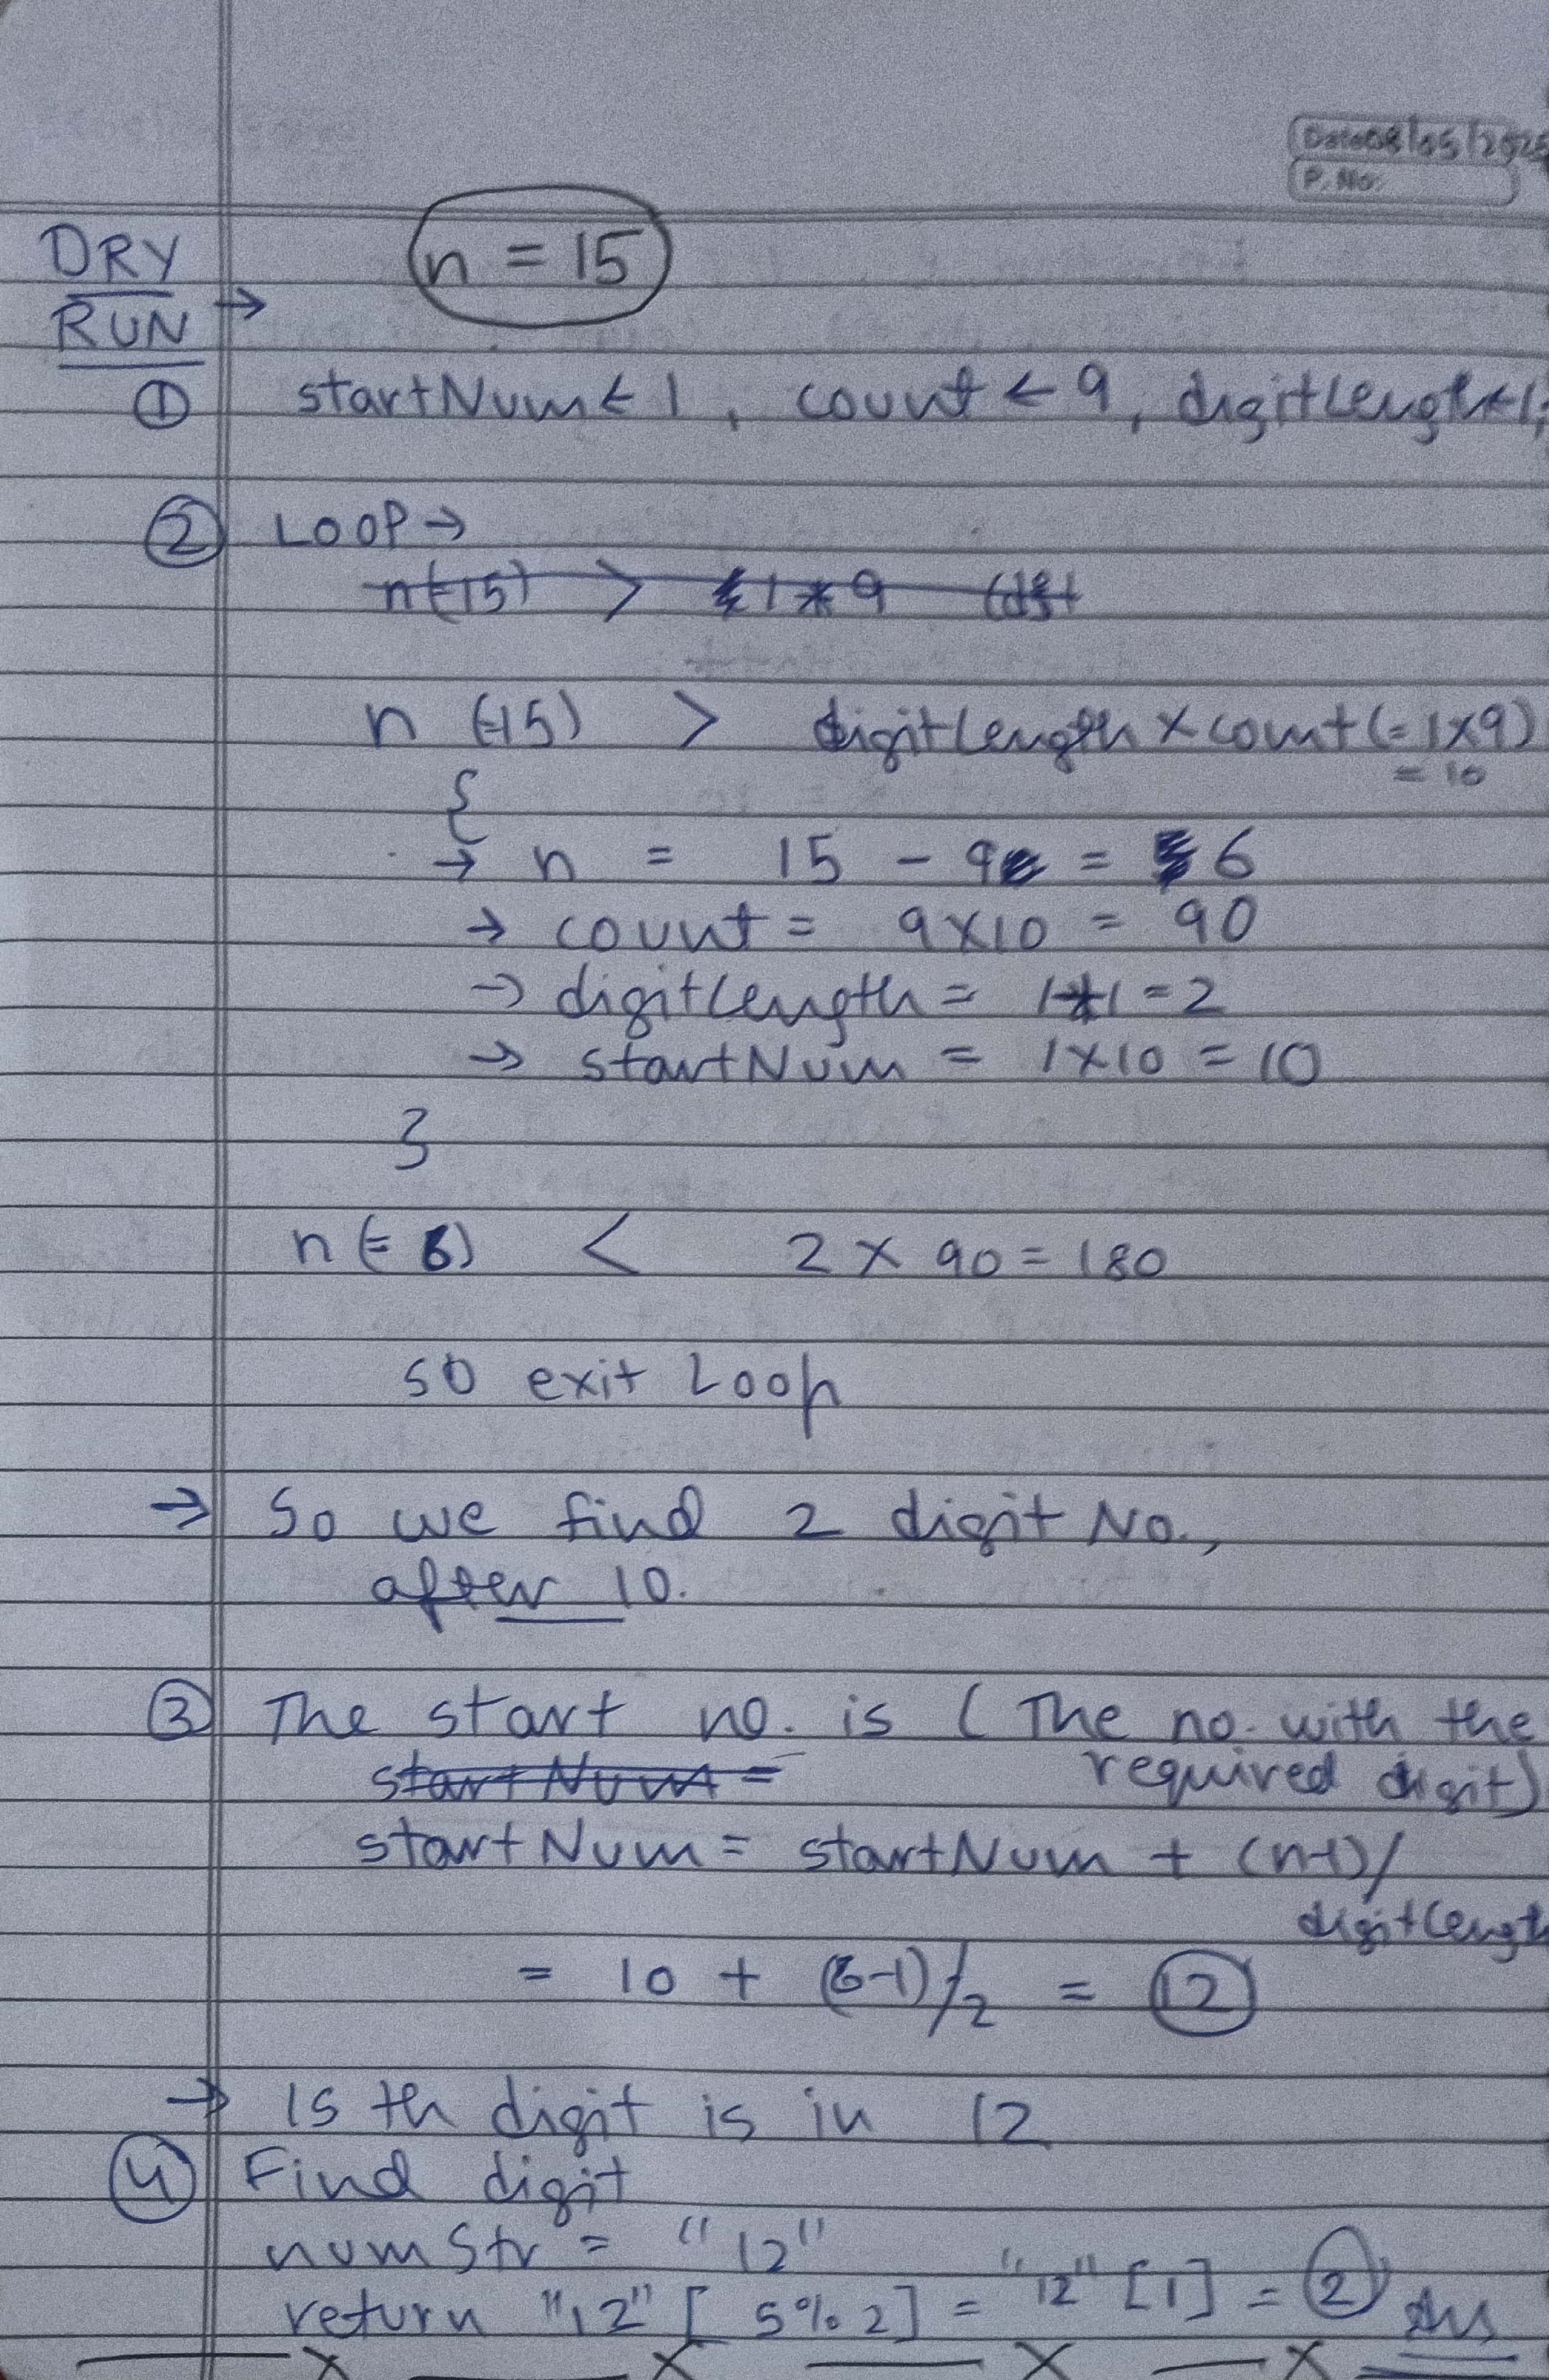 Date 08/05/2025
P. No.
DRY
RUN →
n = 15
① startNum ← 1, count ← 9, digitLength ← 1;
② LOOP →
n(=15) > 1*9
n (=15) > digitLength × count (= 1×9)
= 10
{
→ n = 15 - 9 = 6
→ count = 9×10 = 90
→ digitLength = 1+1 = 2
→ startNum = 1×10 = 10
}
n(= 6) < 2 × 90 = 180
so exit Loop
→ So we find 2 digit No.,
after 10.
③ The start no. is ( The no. with the
startNum = required digit)
startNum = startNum + (n-1)/
digitLength
= 10 + (6-1)/2 = 12
→ 15 th digit is in 12
④ Find digit
numStr = "12"
return "12" [ 5%2] = "12" [1] = 2 Ans